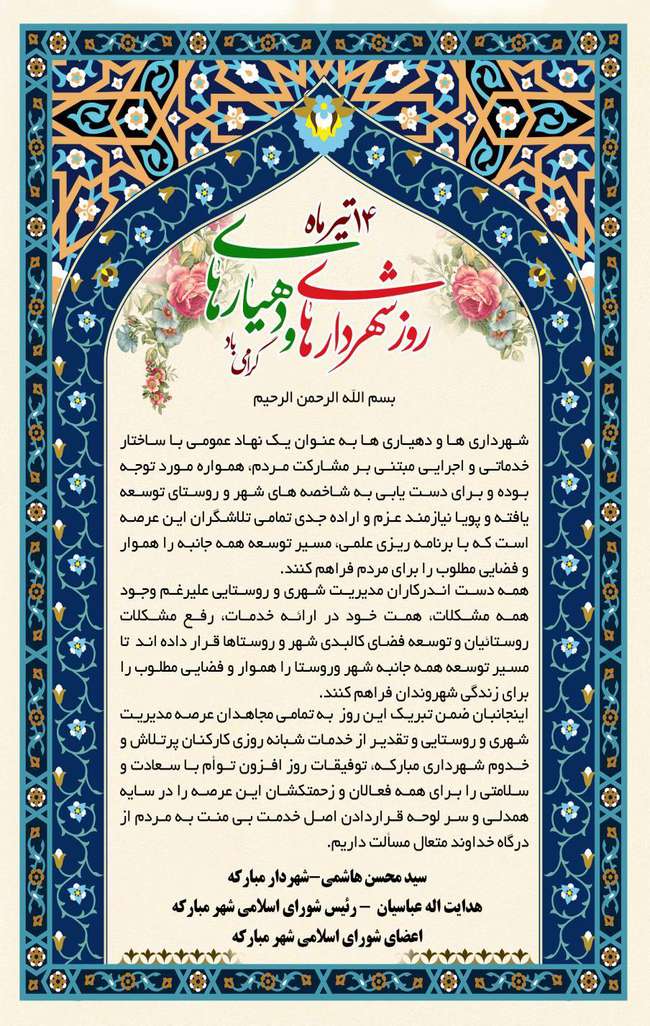 ۱۴ تیر ماه
روز شهرداری ها و دهیاری ها
گرامی باد
بسم الله الرحمن الرحیم
شهرداری ها و دهیاری ها به عنوان یک نهاد عمومی با ساختار
خدماتی و اجرایی مبتنی بر مشارکت مردم، همواره مورد توجه
بوده و برای دست یابی به شاخصه های شهر و روستای توسعه
یافته و پویا نیازمند عزم و اراده جدی تمامی تلاشگران این عرصه
است که با برنامه ریزی علمی، مسیر توسعه همه جانبه را هموار
و فضایی مطلوب را برای مردم فراهم کنند.
همه دست اندرکاران مدیریت شهری و روستایی علیرغم وجود
همه مشکلات، همت خود در ارائه خدمات، رفع مشکلات
روستائیان و توسعه فضای کالبدی شهر و روستاها قرار داده اند تا
مسیر توسعه همه جانبه شهر وروستا را هموار و فضایی مطلوب را
برای زندگی شهروندان فراهم کنند.
اینجانبان ضمن تبریک این روز به تمامی مجاهدان عرصه مدیریت
شهری و روستایی و تقدیر از خدمات شبانه روزی کارکنان پرتلاش و
خدوم شهرداری مبارکه، توفیقات روز افزون توأم با سعادت و
سلامتی را برای همه فعالان و زحمتکشان این عرصه را در سایه
همدلی و سر لوحه قراردادن اصل خدمت بی منت به مردم از
درگاه خداوند متعال مسألت داریم.
سید محسن هاشمی-شهردار مبارکه
هدایت اله عباسیان - رئیس شورای اسلامی شهر مبارکه
اعضای شورای اسلامی شهر مبارکه